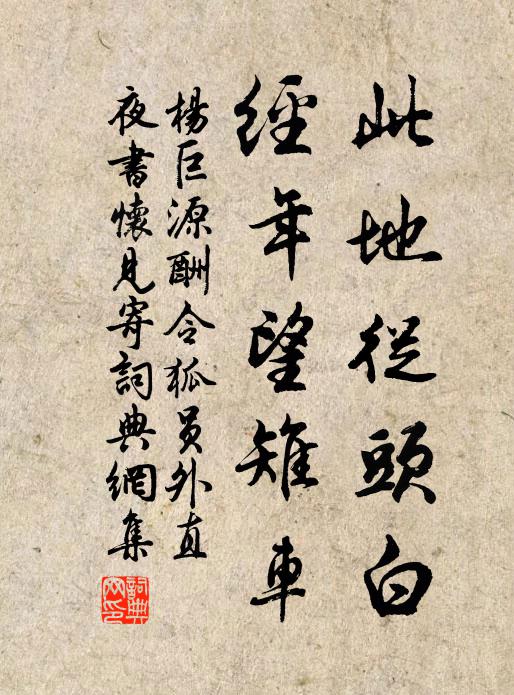 此地從頭白
經年望雉車
楊巨源酬令狐員外直
夜書懷見寄詞典網集
詞典网印